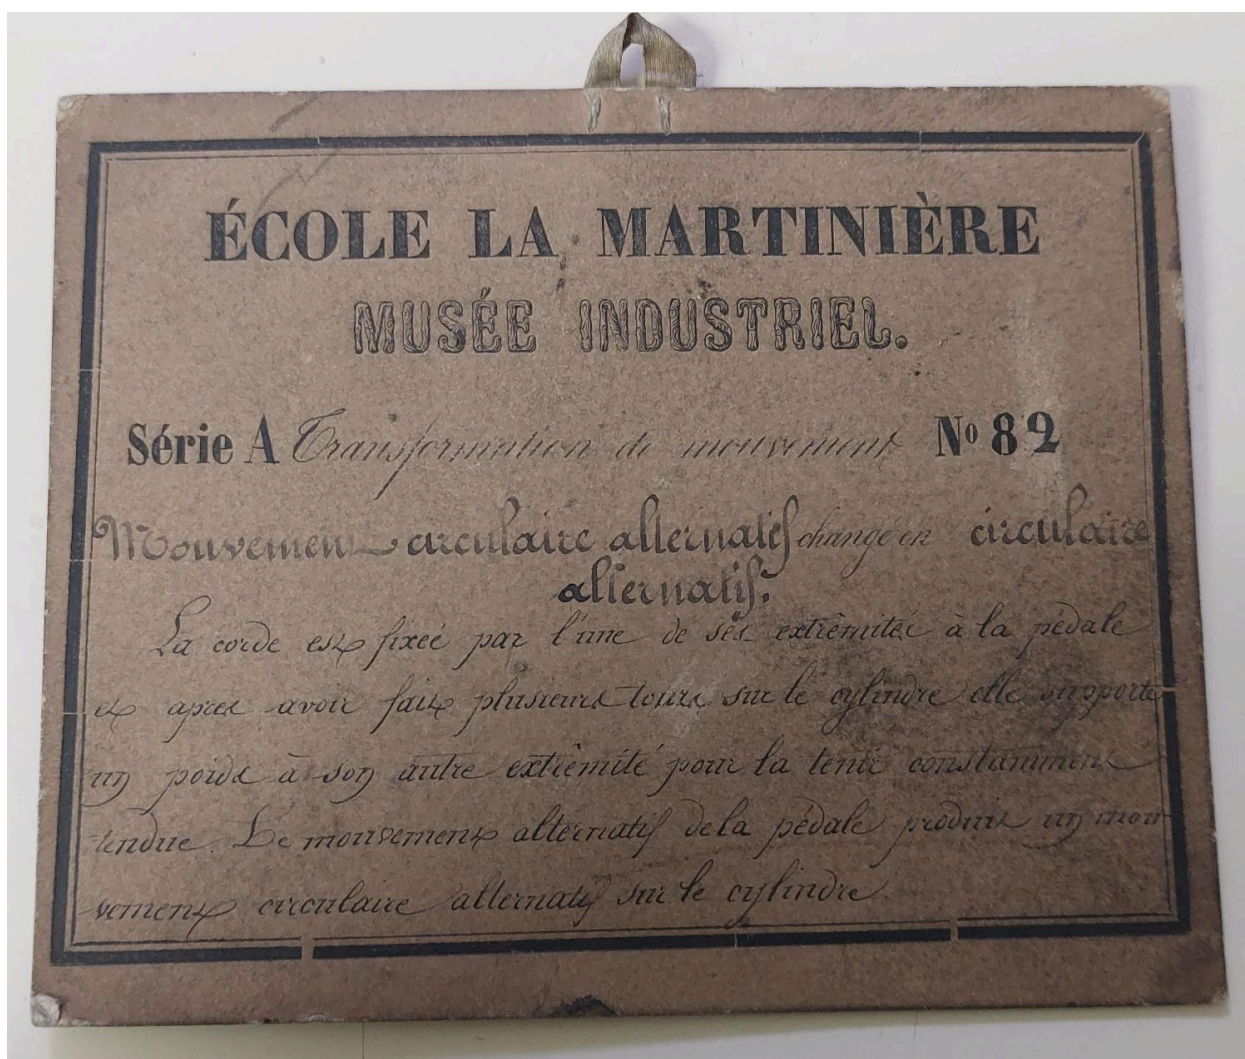 ÉCOLE LA MARTINIÈRE
MUSÉE INDUSTRIEL.
Série A Transformation de mouvement No 82
Mouvement circulaire alternatif changé en circulaire
alternatif.
La corde est fixée par l'une de ses extrêmités à la pédale
et après avoir fait plusieurs tours sur le cylindre elle supporte
un poids à son autre extrêmité pour la tenir constamment
tendue. Le mouvement alternatif de la pédale produit un mou-
vement circulaire alternatif sur le cylindre.